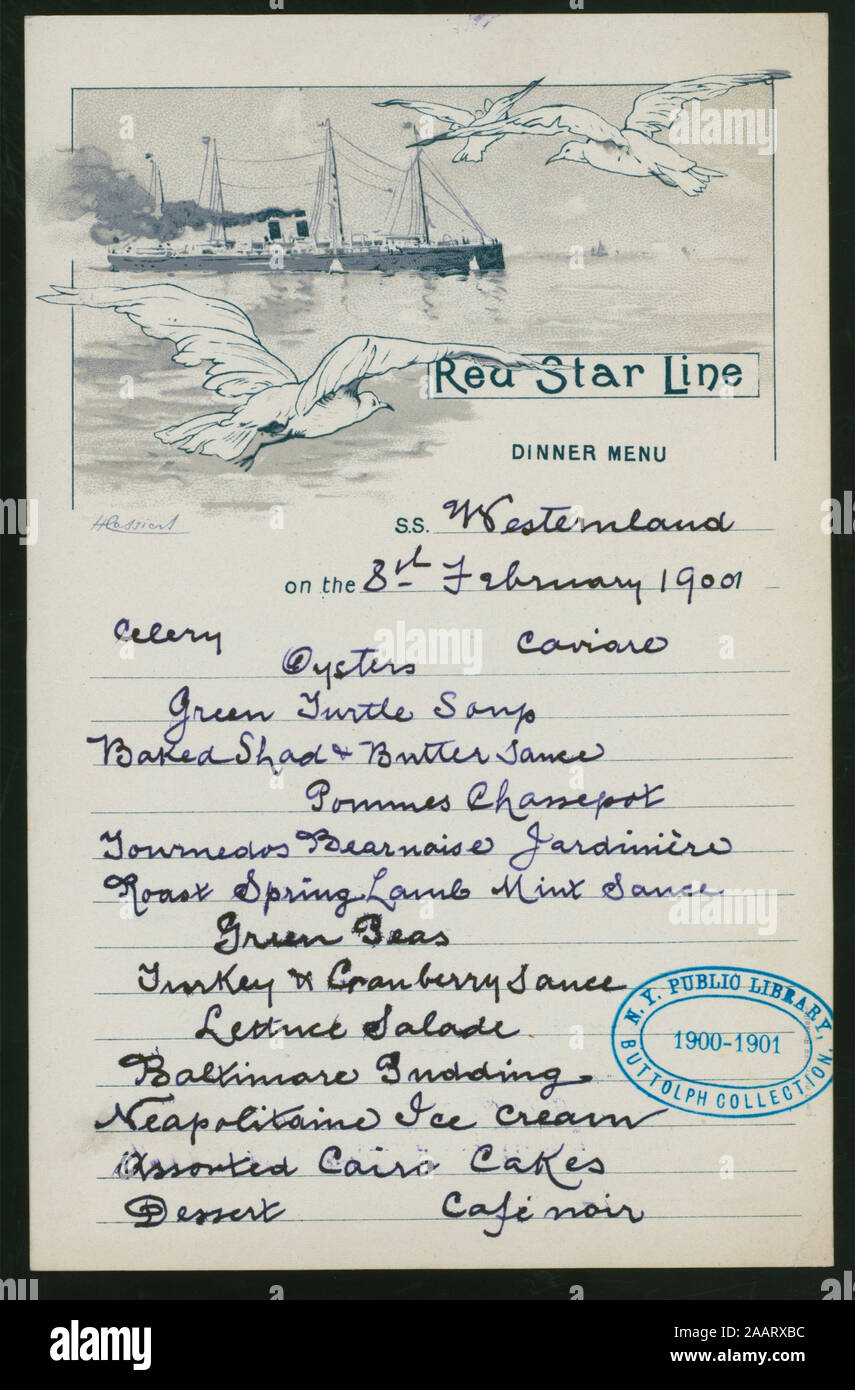 Red Star Line
DINNER MENU
HCassiers
S.S. Westernland
on the 8st February 1901
Celery Caviare
Oysters
Green Turtle Soup
Baked Shad & Butter Sauce
Pommes Chassepot
Tournedos Bearnaise Jardinière
Roast Spring Lamb Mint Sauce
Green Peas
Turkey & Cranberry Sauce
Lettuce Salade
Baltimore Pudding
Neapolitaine Ice Cream
Assorted Cairo Cakes
Dessert Café noir
N.Y. PUBLIC LIBRARY,
1900-1901
BUTTOLPH COLLECTION.
alamy
Image ID: 2AARXBC
www.alamy.com